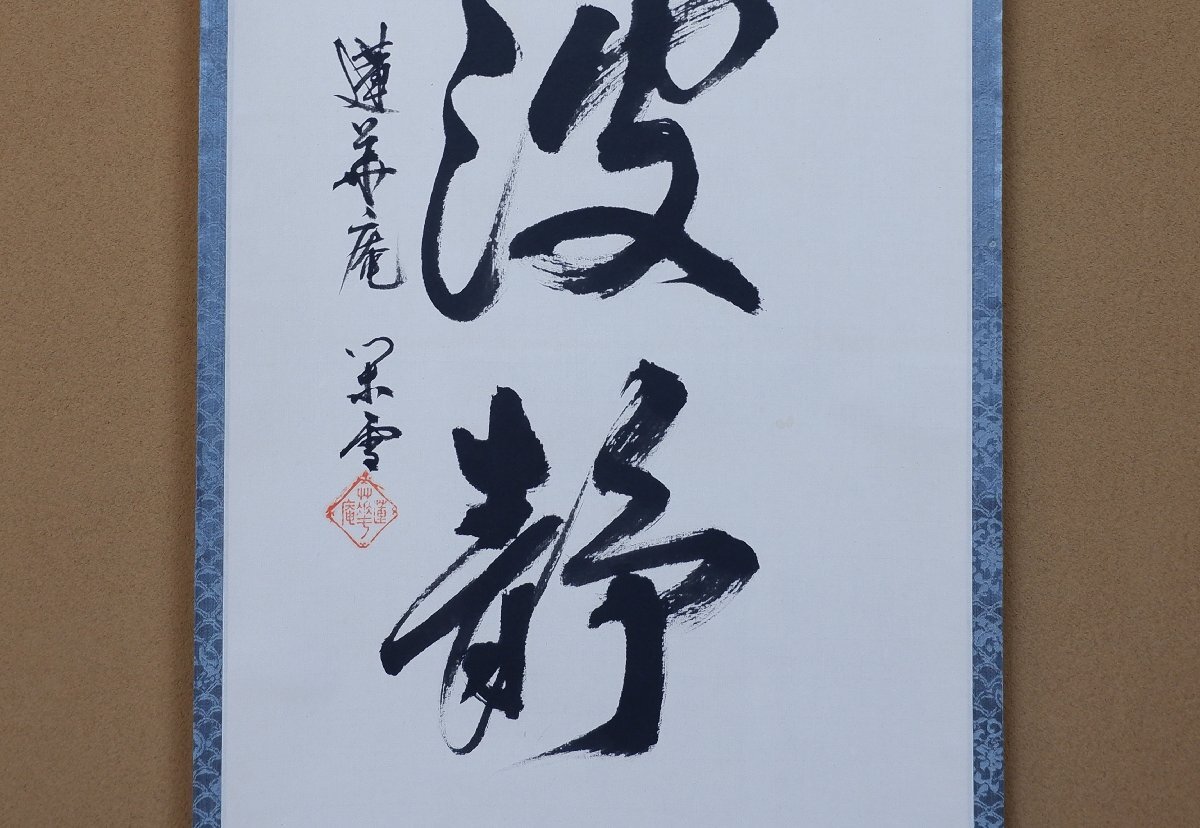 波静
蓮華庵 閑雪
蓮華庵